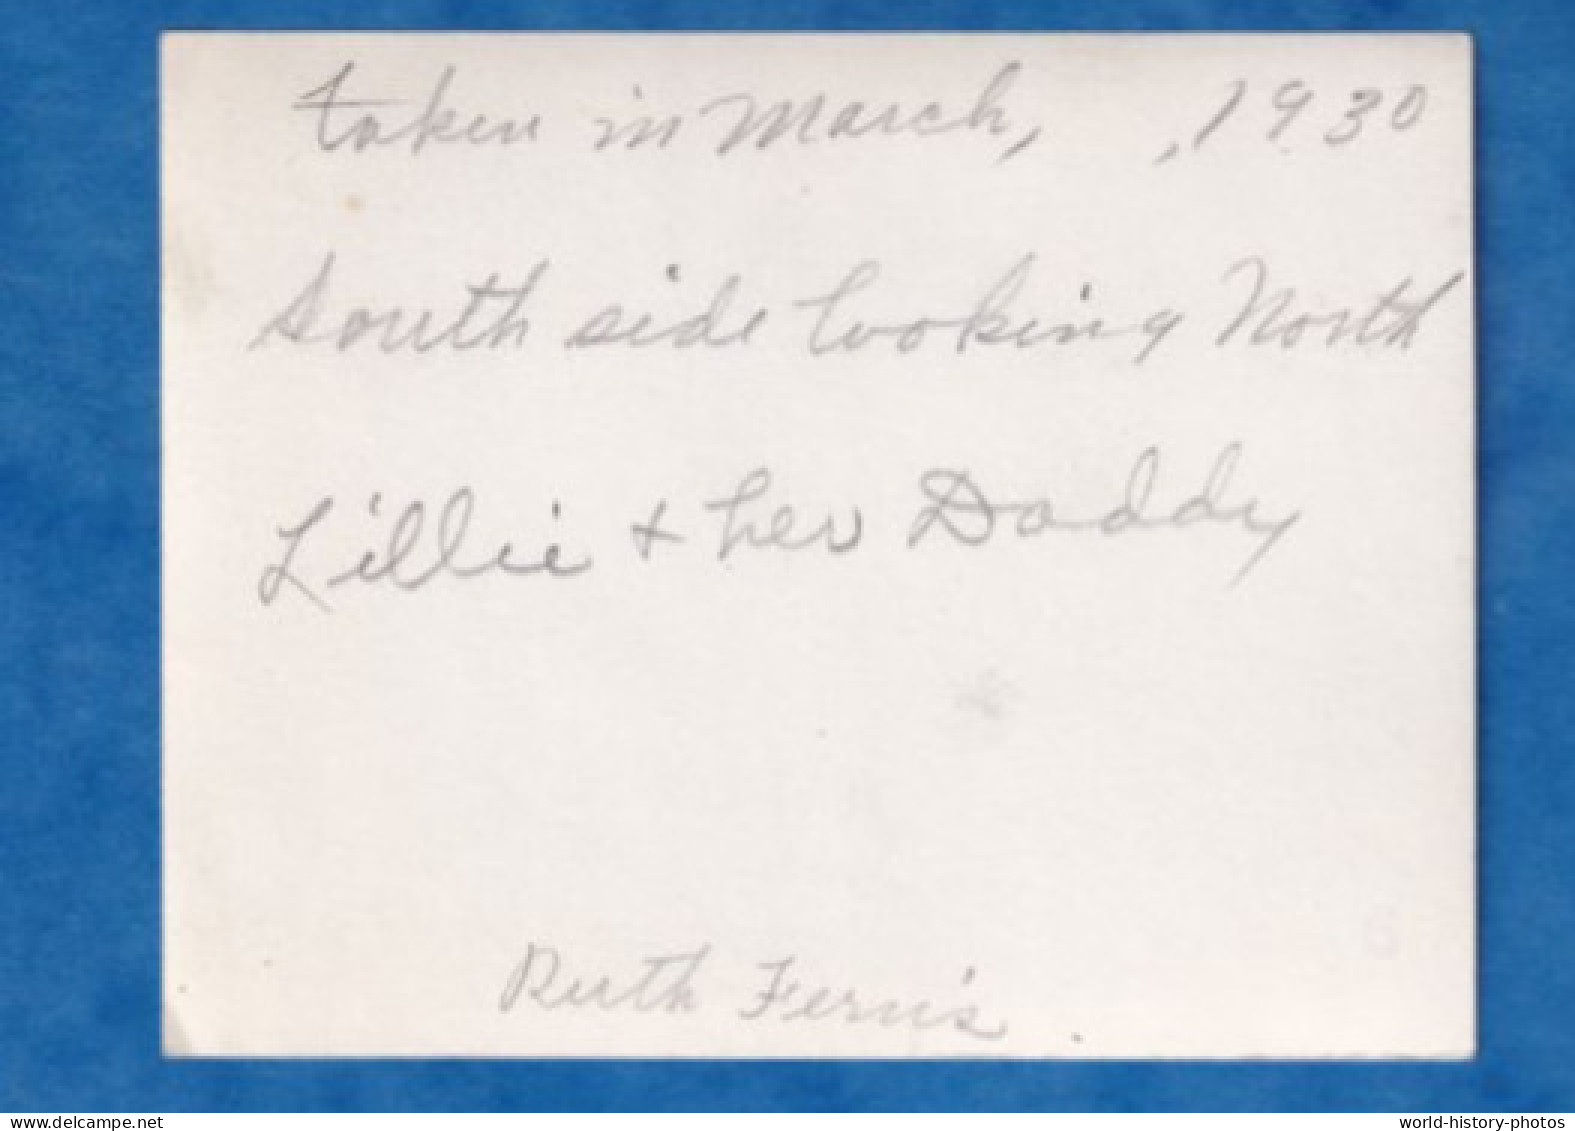 taken in March, , 1930
South side looking North
Lillie + her Daddy
Ruth Fern's
www.delcampe.net
world-history-photos